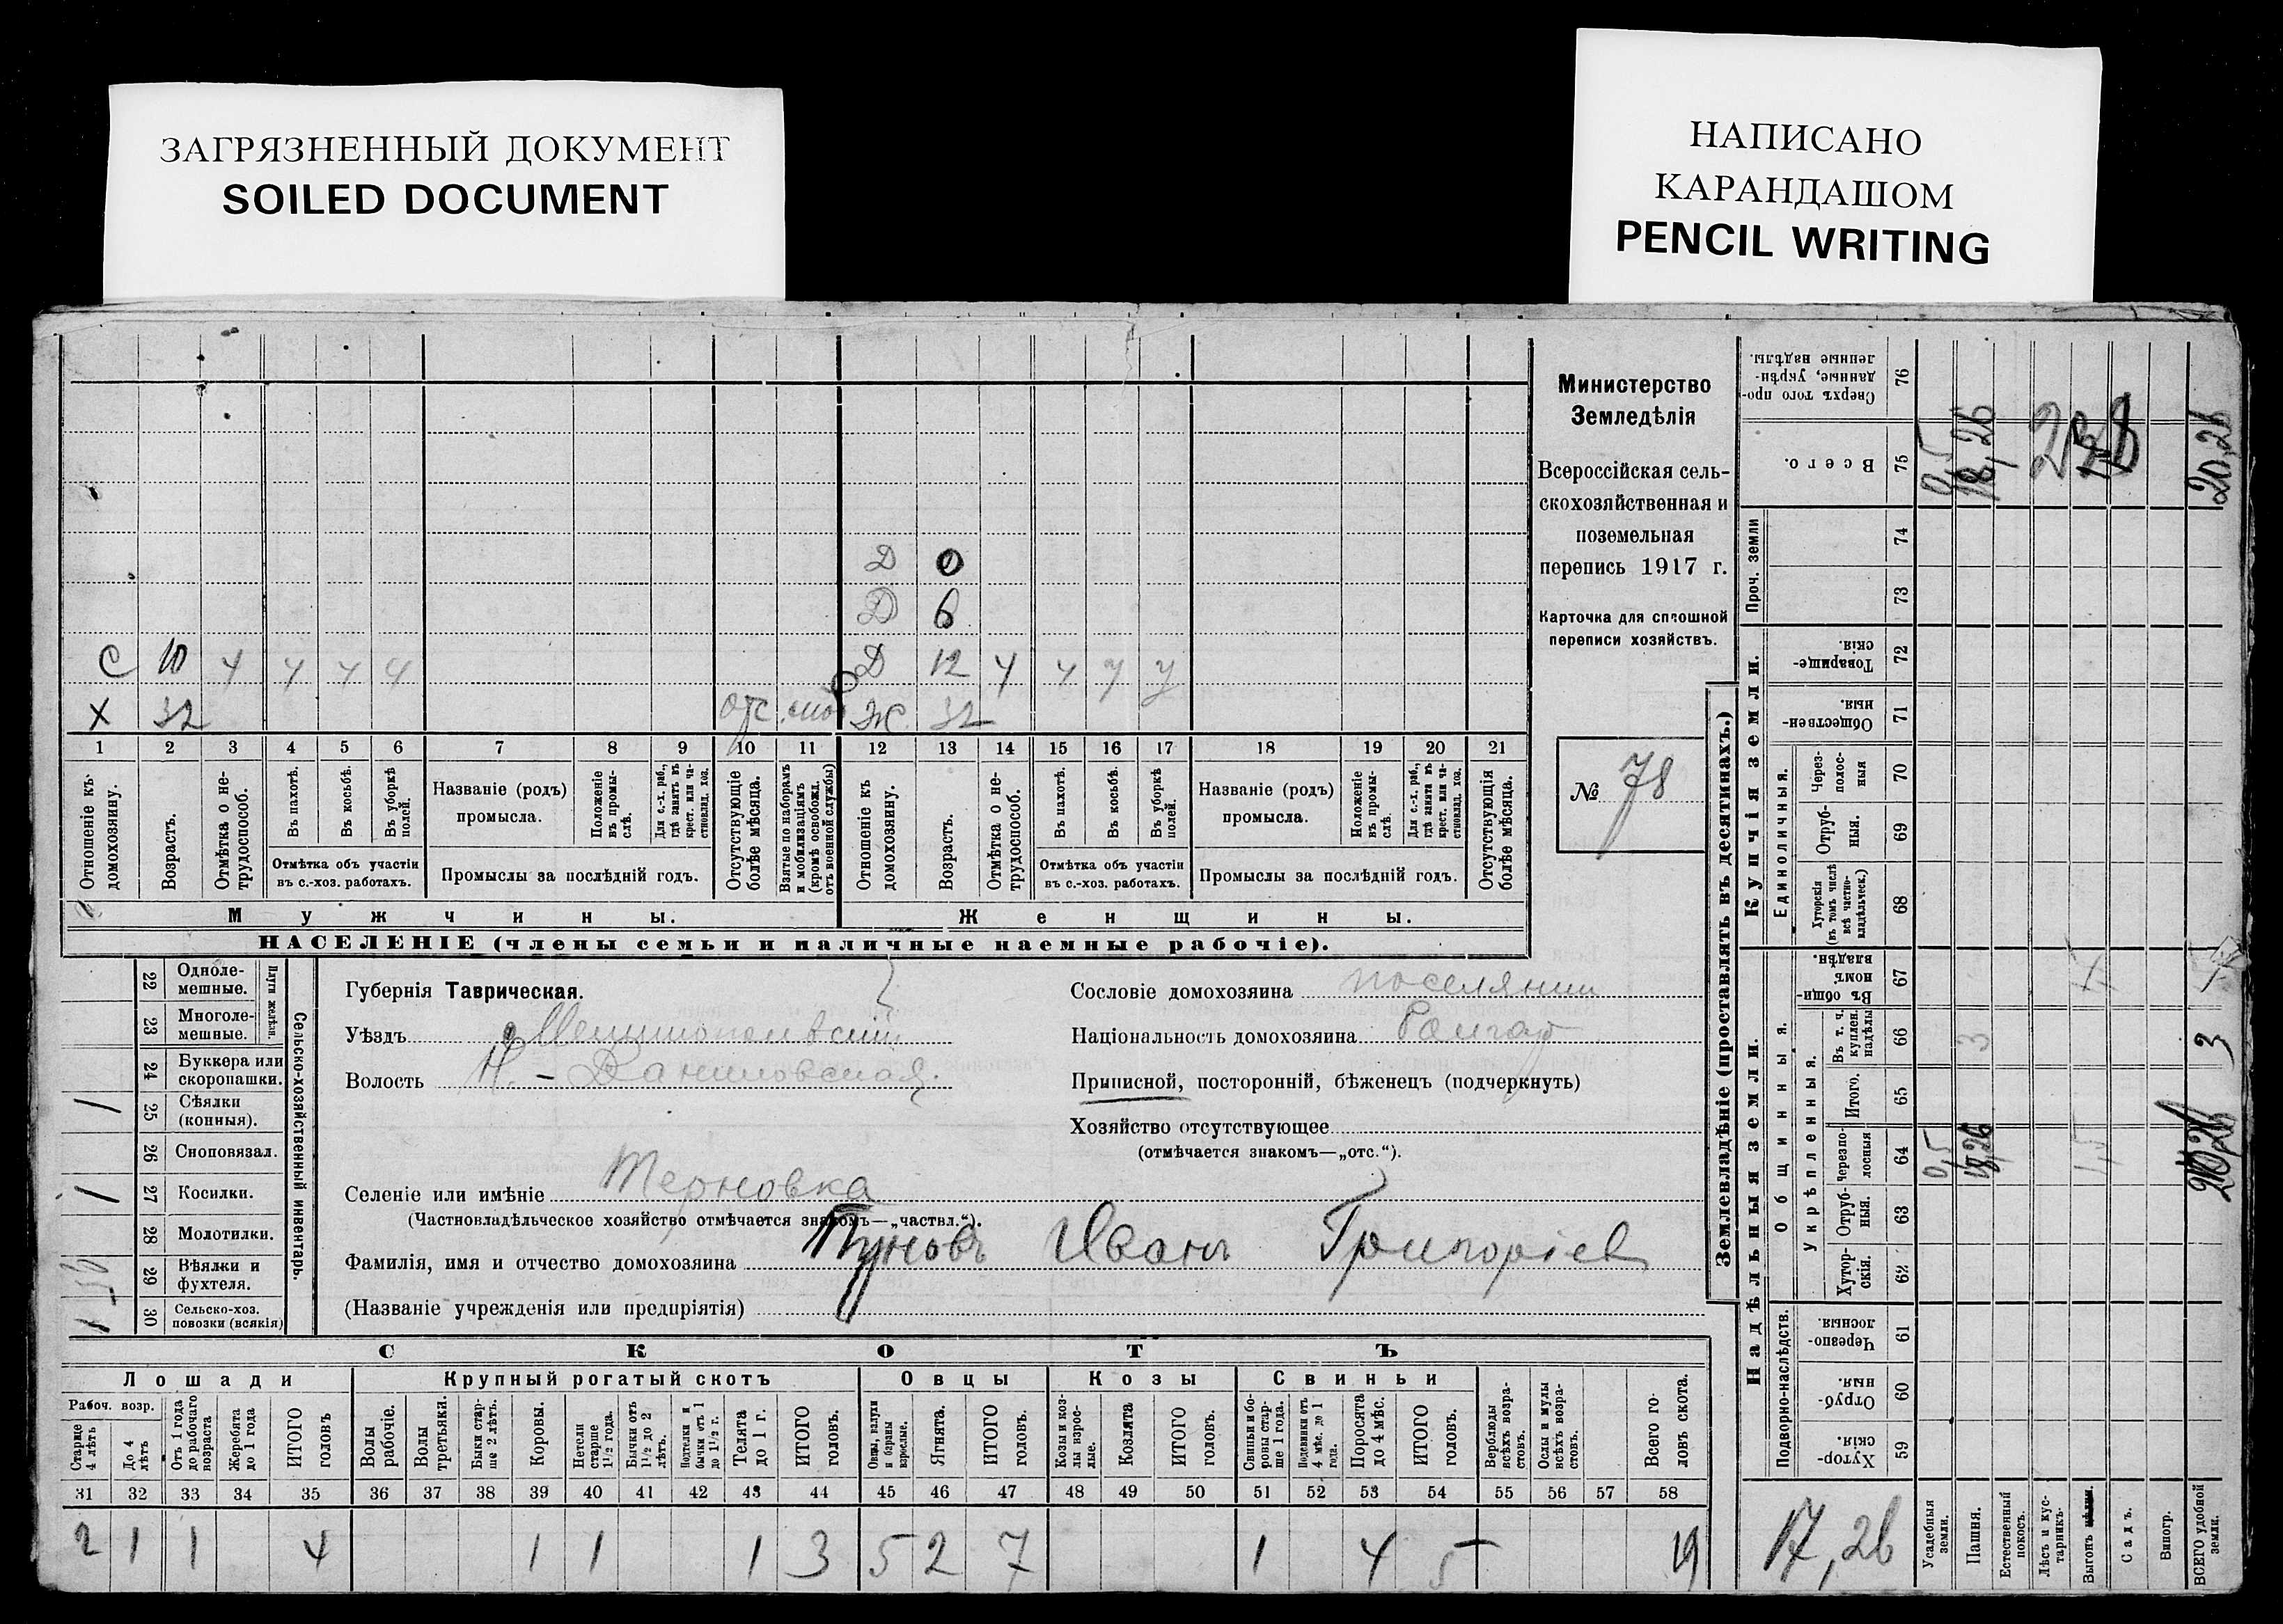 ЗАГРЯЗНЕННЫЙ ДОКУМЕНТ
SOILED DOCUMENT
НАПИСАНО
КАРАНДАШОМ
PENCIL WRITING
Министерство
Земледѣлія
Всероссійская сель-
скохозяйственная и
поземельная
перепись 1917 г.
Карточка для сплошной
переписи хозяйствъ.
№ 78
Д 0
Д 6
С 10 ч ч ч ч Д 12 ч ч ч ч
Х 32 отс. Ж. 32
1 2 3 4 5 6 7 8 9 10 11 12 13 14 15 16 17 18 19 20 21
Отношеніе къ домохозяину.
Возрастъ.
Отмѣтка о не-трудоспособ.
Въ пахотѣ.
Въ косьбѣ.
Въ уборкѣ полей.
Отмѣтка объ участіи
въ с.-хоз. работахъ.
Названіе (родъ)
промысла.
Положеніе въ промы-слѣ.
Для с.-х. раб., гдѣ занятъ въ крест. или ча-стновлад. хоз.
Промыслы за послѣдній годъ.
Отсутствующіе болѣе мѣсяца.
Взятые по наборамъ и мобилизаціямъ (кромѣ освобожд. отъ военной службы)
Отношеніе къ домохозяину.
Возрастъ.
Отмѣтка о не-трудоспособ.
Въ пахотѣ.
Въ косьбѣ.
Въ уборкѣ полей.
Отмѣтка объ участіи
въ с.-хоз. работахъ.
Названіе (родъ)
промысла.
Положеніе въ промы-слѣ.
Для с.-х. раб., гдѣ занята въ крест. или ча-стновлад. хоз.
Промыслы за послѣдній годъ.
Отсутствующія болѣе мѣсяца.
Мужчины. Женщины.
НАСЕЛЕНІЕ (члены семьи и наличные наемные рабочіе).
22 Одноле-мешные.
23 Многоле-мешные.
Плуги желѣзн.
24 Буккера или скоропашки.
1 25 Сѣялки (конныя).
26 Сноповязал.
1 27 Косилки.
28 Молотилки.
29 Вѣялки и фухтеля.
1 30 Сельско-хоз. повозки (всякія)
Сельско-хозяйственный инвентарь.
Губернія Таврическая.
Уѣздъ Мелитопольскій
Волость Н.-Даниловская
Сословіе домохозяина поселянин
Національность домохозяина Болгар
Приписной, посторонній, бѣженецъ (подчеркнуть)
Хозяйство отсутствующее
(отмѣчается знакомъ—„отс.“).
Селеніе или имѣніе Терновка
(Частновладѣльческое хозяйство отмѣчается знакомъ—„частвл.“).
Фамилія, имя и отчество домохозяина Пуновъ Иванъ Григоріев
(Названіе учрежденія или предпріятія)
СКОТЪ
Лошади Крупный рогатый скотъ Овцы Козы Свиньи
Рабоч. возр.
Старше 4 лѣтъ
До 4 лѣтъ
Отъ 1 года до рабочаго возраста
Жеребята до 1 года
ИТОГО головъ
Волы рабочіе.
Волы третьяки.
Быки стар-ше 2 лѣтъ.
Коровы.
Нетели старше 1½ года.
Бычки отъ 1½ до 2 лѣтъ.
Подтелки и бычки отъ 1 до 1½ г.
Телята до 1 г.
ИТОГО головъ.
Овцы, валухи и бараны взрослые.
Ягнята.
ИТОГО головъ.
Козы и коз-лы взрос-лые.
Козлята
ИТОГО головъ.
Свиньи и бо-ровы стар-ше 1 года.
Подсвинки отъ 4 мѣс. до 1 года.
Поросята до 4 мѣс.
ИТОГО головъ.
Верблюды всѣхъ возра-стовъ.
Ослы и мулы всѣхъ возра-стовъ.
Всего го-ловъ скота.
31 32 33 34 35 36 37 38 39 40 41 42 43 44 45 46 47 48 49 50 51 52 53 54 55 56 57 58
2 1 1 4 1 1 1 3 5 2 7 1 4 5 19
Землевладѣніе (проставлять въ десятинахъ.)
Надѣльныя земли. Купчія земли. Проч. земли
Подворно-наслѣдств.
Общинныя.
Укрѣпленныя.
Единоличныя.
Хутор-скія. 59
Отруб-ныя. 60
Черезпо-лосныя. 61
Хутор-скія. 62
Отруб-ныя. 63
Черезпо-лосныя 64
Итого. 65
Въ т. ч. куплен. надѣлы 66
Въ общи-номъ владѣн. 67
Хуторскія (въ томъ числѣ всѣ частно-владѣльческ.) 68
Отруб-ныя. 69
Через-полос-ныя 70
Обществен-ныя. 71
Товарище-скія. 72
73
74
Всего. 75
Сверхъ того про-данные, укрѣп-ленные надѣлы. 76
17,26
Усадебныя земли. 0,5 0,5
Пашня. 18,26 3 18,26
Естественный покосъ.
Лѣсъ и кус-тарникъ.
Выгонъ 1,5 1
Садъ.
Виногр.
ВСЕГО удобной земли. 3 20,26